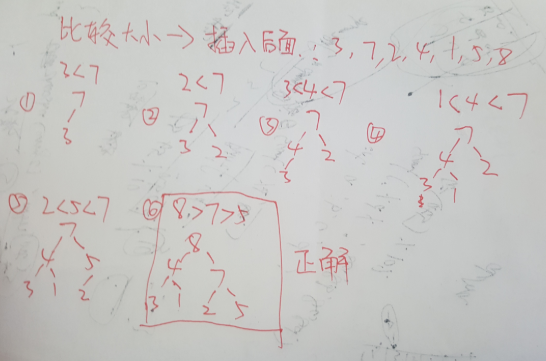 比较大小→插入后面：3,7,2,4,1,5,8
① 3<7
7
3
② 2<7
7
3 2
③ 3<4<7
7
4 2
3
④ 1<4<7
7
4 2
3 1
⑤ 2<5<7
7
4 5
3 1 2
⑥ 8>7>5
8
4 7
3 1 2 5
正解